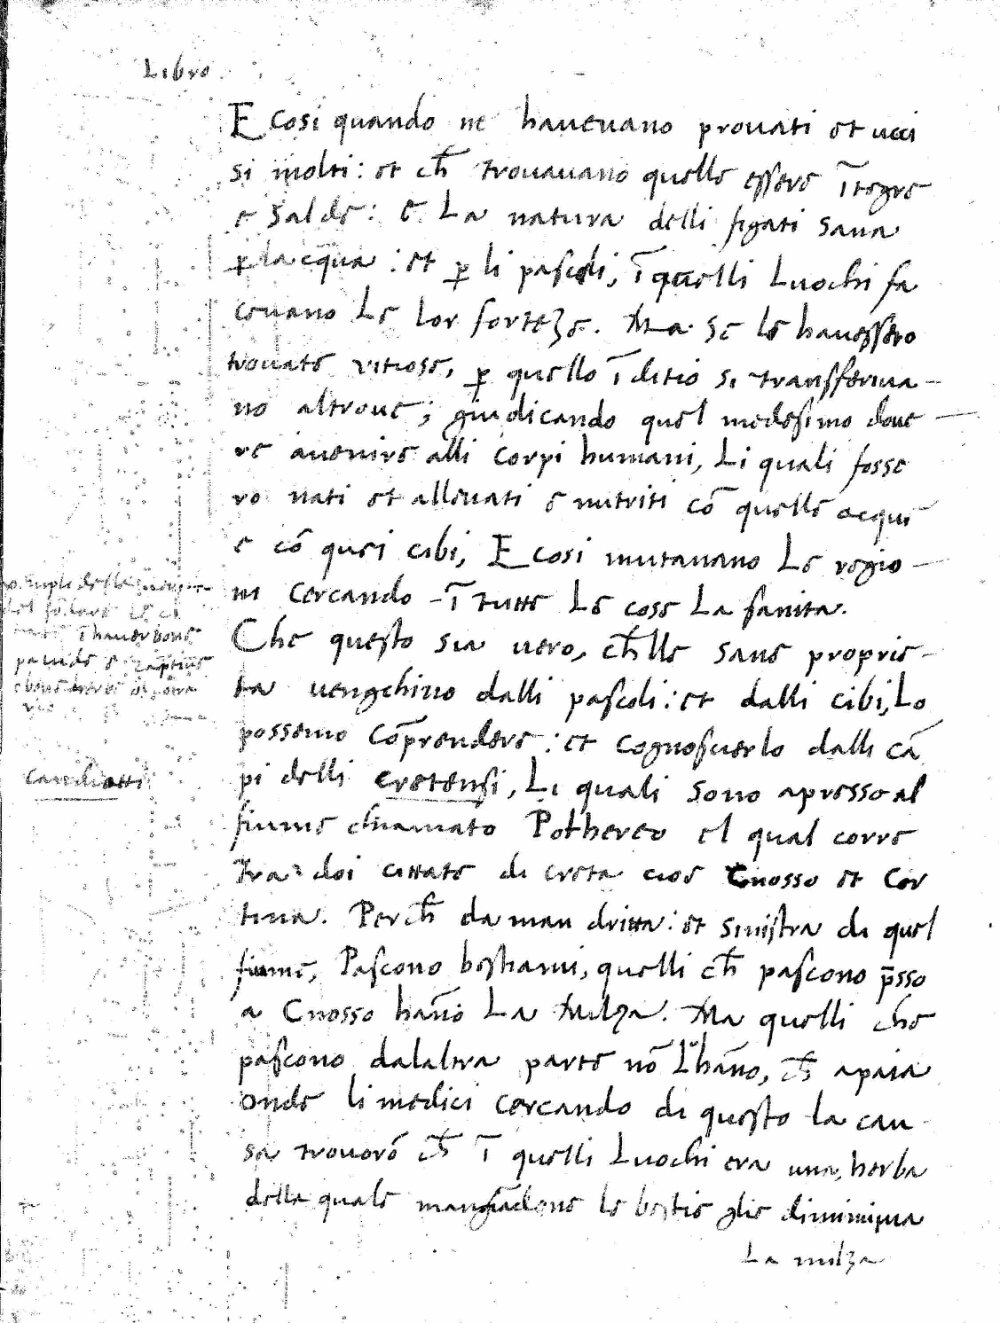 Libro
E cosi quando ne havevano provati et ucci
si molti: et ch̄ trovavano quelle essere ītegre
e salde: E La natura delli figati sana
p̱ la cqua: et p̱ li pascoli, ī quelli Luochi fa
cevano Le lor forteze. Ma se le havessero
trovate vitiose, p̱ quello īditio si transferiva-
no altrove; giudicando quel medesimo dove
re avenire alli corpi humani, Li quali fosse
ro nati et allevati e nutriti cō quelle acque
e cō quei cibi, E cosi mutavano Le regio-
ni cercando ī tutte Le cose La sanita.
Che questo sia vero, ch̄lle sane proprie-
ta venghino dalli pascoli: et dalli cibi, Lo
possemo cōprendere: et cognoscerlo dalli cā
pi delli cretensi, Li quali sono apresso al
fiume chiamato Pothereo el qual corre
tra doi cittate di creta cioe Gnosso et Cor
tina. Perch̄ da man dritta: et sinistra di quel
fiume, Pascono beshami, quelli ch̄ pascono p̄sso
a Cnosso hāno La Milza. Ma quelli che
pascono dalaltra parte nō L'hāno, ch̄ apaia
onde li medici cercando di questo la cau
sa trovorō ch̄ ī quelli Luochi era una herba
della quale mangiādone le bestie glie diminiqua
La milza
ī haver bone
Candiotti